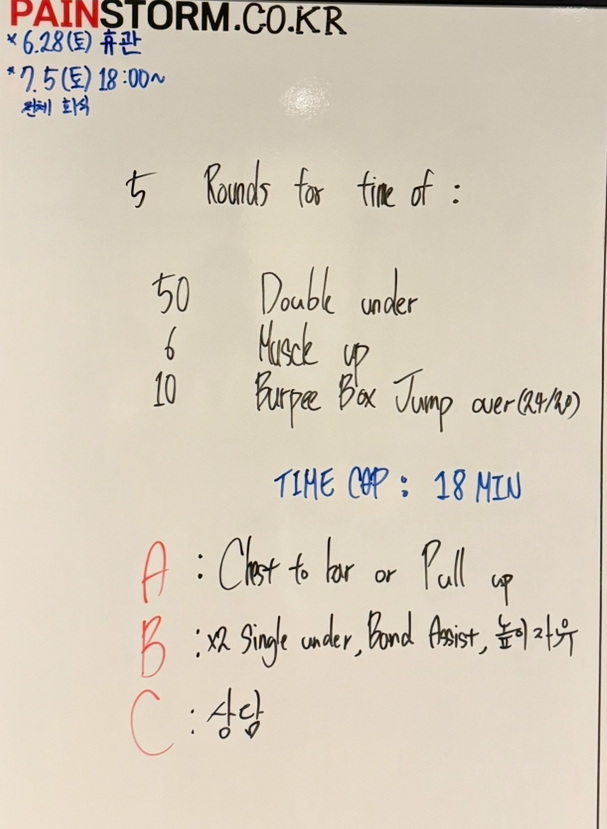 PAINSTORM.CO.KR
* 6.28(토) 휴관
* 7.5(토) 18:00~
전체 회식
5 Rounds for time of :
50 Double under
6 Muscle up
10 Burpee Box Jump over(24/20)
TIME CAP : 18 MIN
A : Chest to bar or Pull up
B : x2 Single under, Band Assist, 높이자유
C : 상담